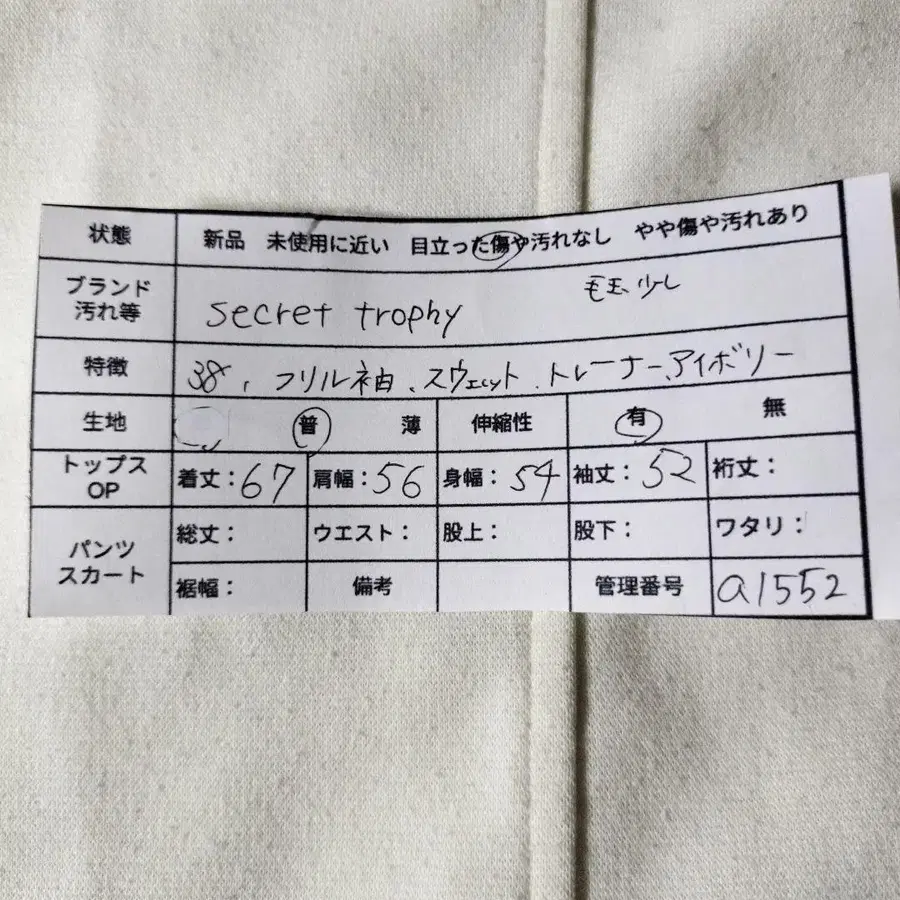 状態 新品 未使用に近い 目立った傷や汚れなし やや傷や汚れあり
ブランド 汚れ等 secret trophy 毛玉少し
特徴 38、フリル袖、スウェット、トレーナー、アイボリー
生地 普 薄 伸縮性 有 無
トップス OP 着丈：67 肩幅：56 身幅：54 袖丈：52 裄丈：
パンツ スカート 総丈： ウエスト： 股上： 股下： ワタリ：
裾幅： 備考 管理番号 a1552